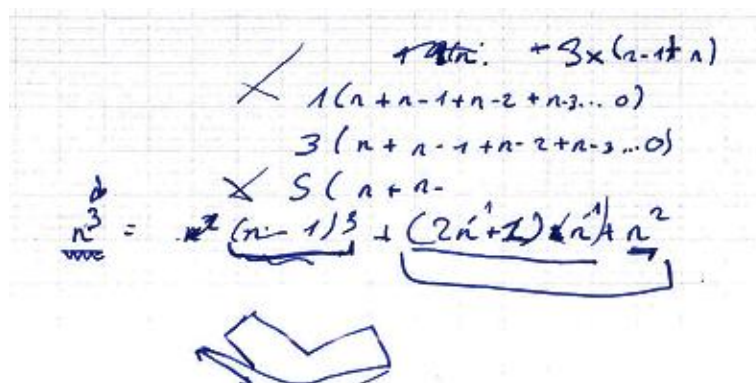 +3x(n-1+n)
1(n+n-1+n-2+n-3...0)
3(n+n-1+n-2+n-3...0)
5(n+n-
n³ = (n-1)³ + (2n⁻¹+1)x(n⁻¹)+n²